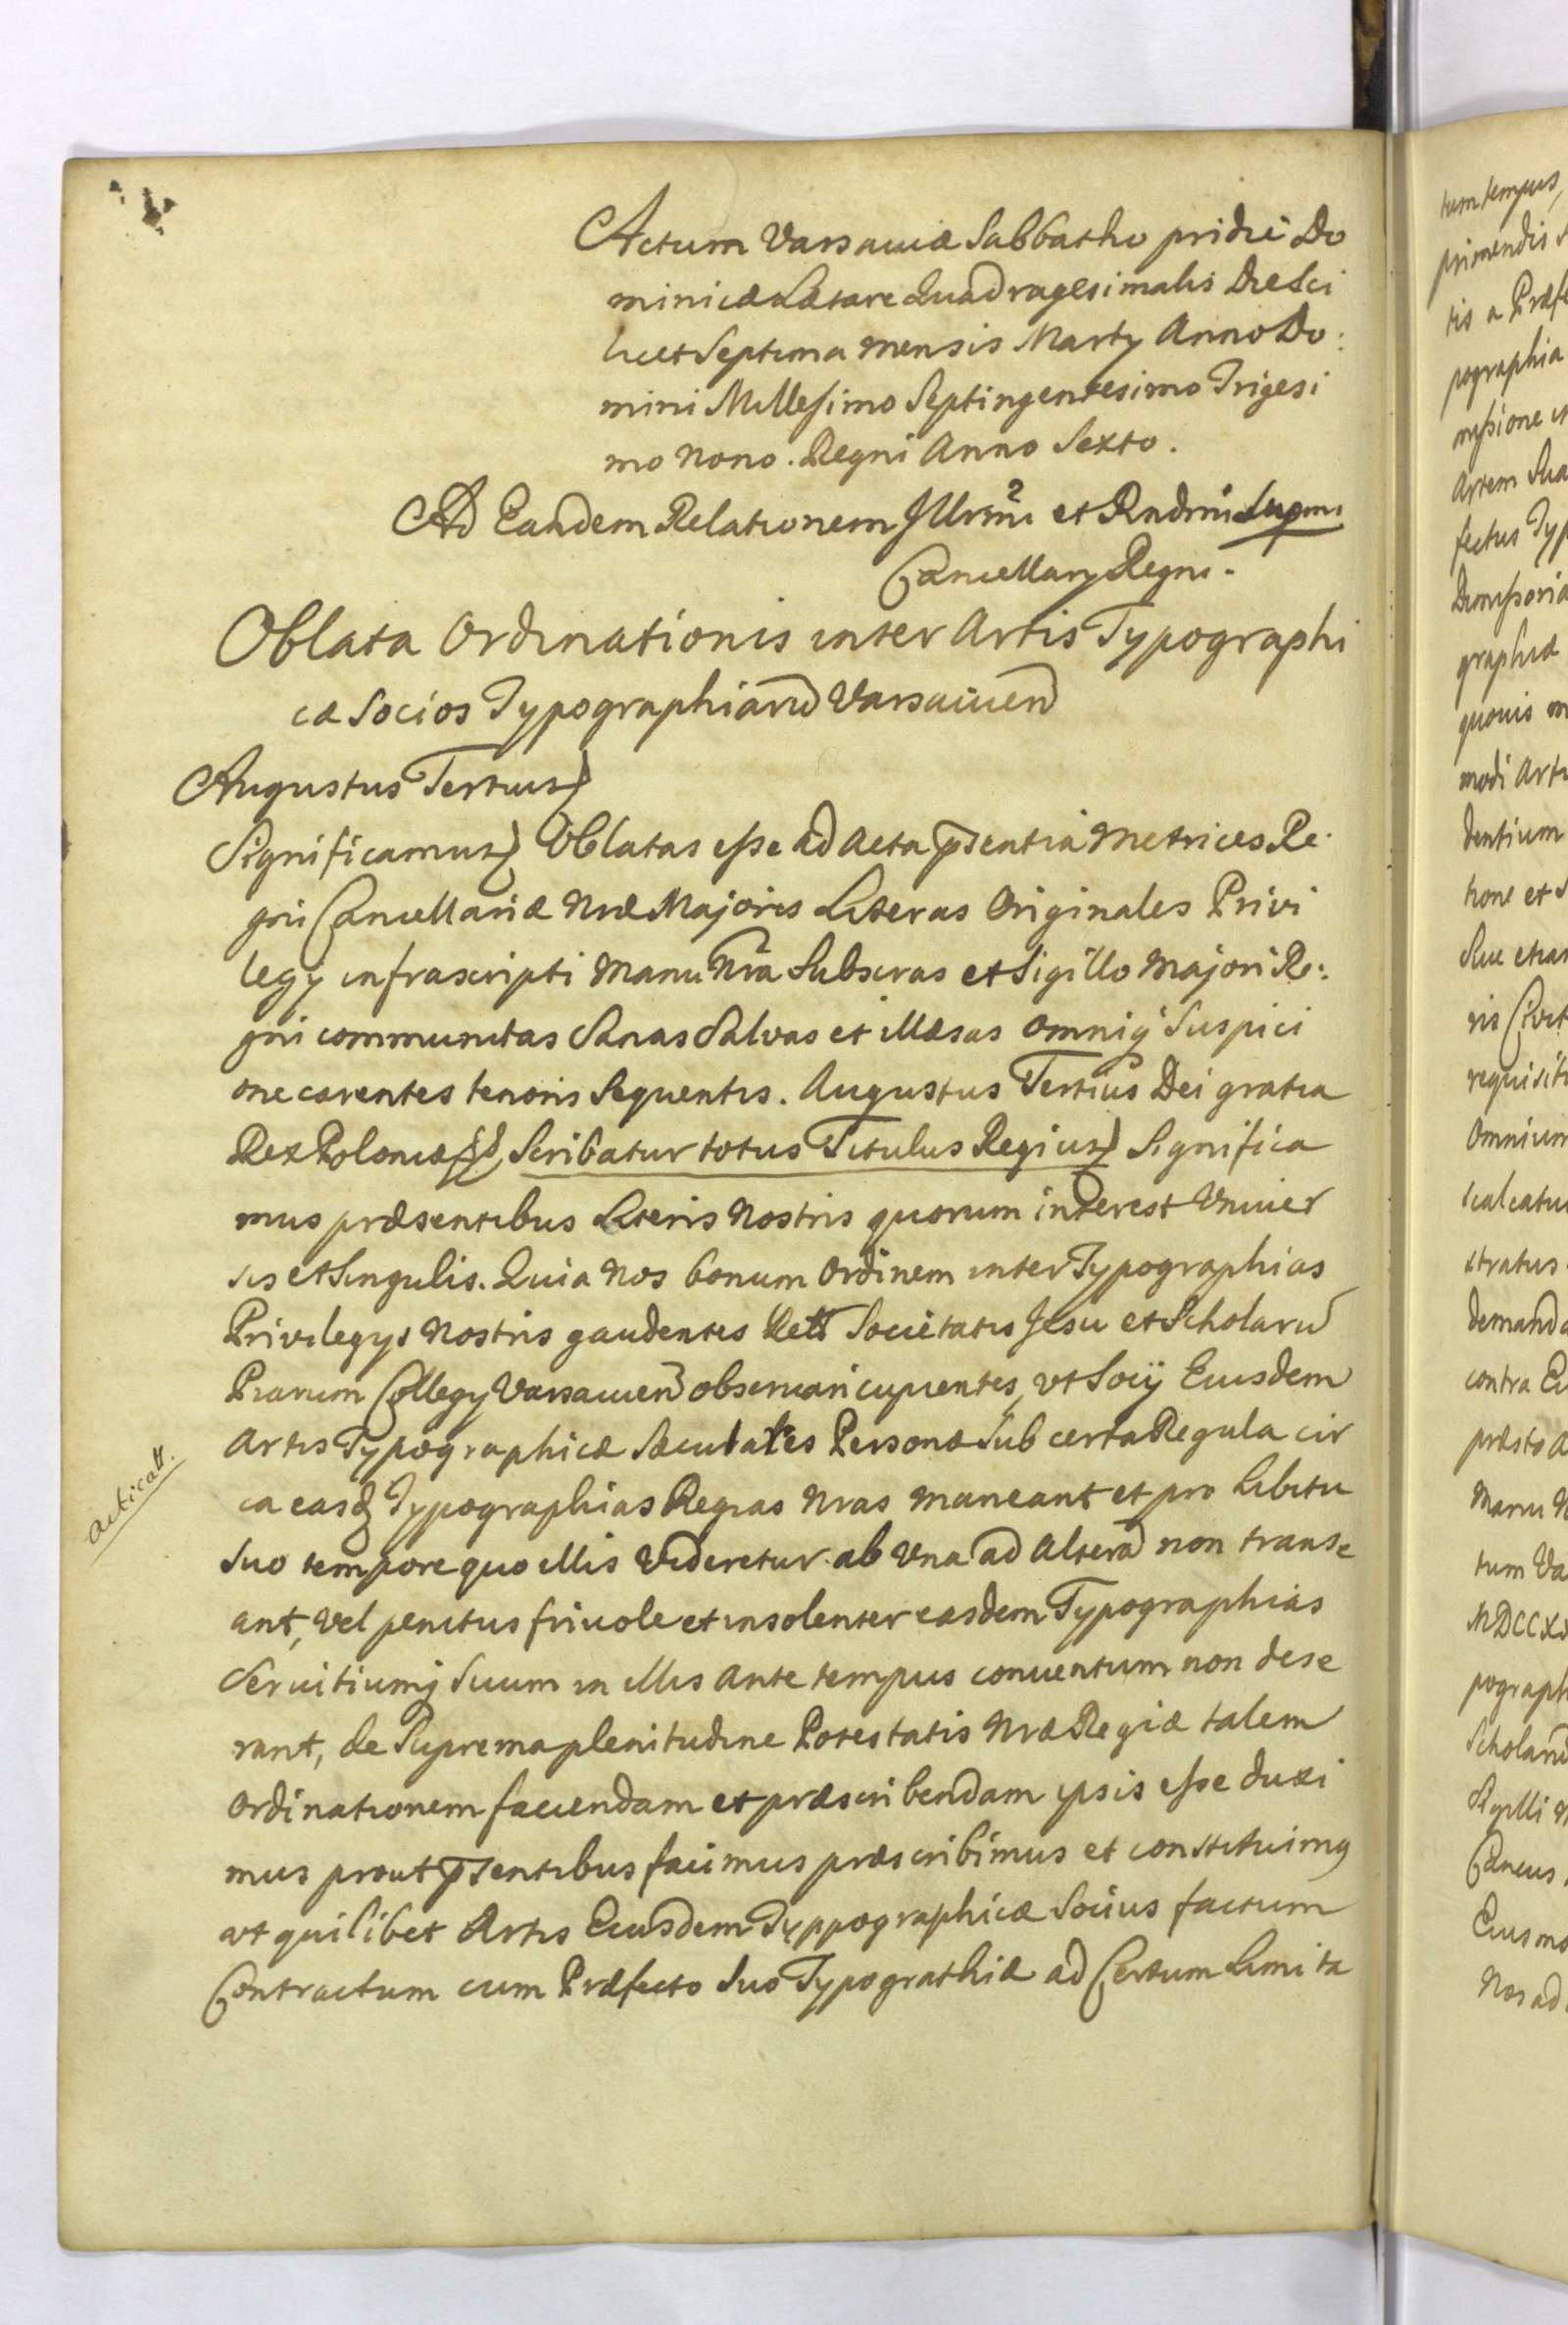 Actum Varsaviæ Sabbatho pridie Do
minicæ Lætare Quadragesimalis Die Sci
licet Septima mensis Marty Anno Do:
mini Millesimo Septingentesimo Trigesi
mo nono. Regni Anno Sexto.
Ad Eandem Relationem Illrmi et Rndmi Supmi
Cancellary Regni.
Oblata Ordinationis inter Artis Typographi
cæ Socios Typographiarũ Varsavien
Augustus Tertius
Significamus Oblatas esse ad Acta pñsentia Metrices Re
gni Cancellariæ Nræ Majoris Literas Originales Privi
legy infrascripti Manu Nra Subscras et Sigillo Majori Re:
gni communitas Sanas Salvas et illæsas omniq Suspici
one carentes tenoris Sequentis. Augustus Tertius Dei gratia
Rex Poloniæ Scribatur totus Titulus Regius Significa
mus præsentibus Literis Nostris quorum interest Vniver
sis et Singulis. Quia Nos bonum Ordinem inter Typographias
Privilegys Nostris gaudentes Societatis Jesu et Scholarũ
Piarum Collegy Varsavien observari cupientes, vt Socÿ Eiusdem
Artis Typographicæ Sæculares Personæ Sub certa Regula cir
ca easq Typographias Regias Nras maneant et pro Libitu
Suo tempore quo illis Videretur ab Vna ad Alterã non transe
ant, Vel penitus frivole et insolenter easdem Typographias
Servitiumq Suum in illis Ante tempus conventum non dese
rant, de Suprema plenitudine Potestatis Nræ Regiæ talem
Ordinationem faciendam et præscribendam ipsis esse duxi
mus prout pñsentibus facimus præscribimus et constituimq
vt quilibet Artis Eiusdem Typpographicæ Socius factum
Contractum cum Præfecto Suo Typograthiæ ad Certum Limita
acticatt.
tum tempus,
primendis
tis a Præf
pographia
Artem Sua
fectus Typ
graphiæ
quovis
modi Arti
dentium
tione et
Sive etiam
requisit
Omnium
stratus
demand
contra Ei
præsto
Manu N
tum Va
MDCCXX
pograph
Scholarũ
Sigilli
Eius mo
Nos ad